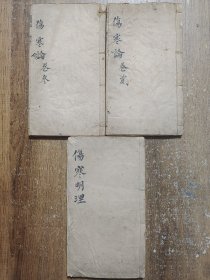 傷寒論卷叁
傷寒論卷貳
傷寒明理